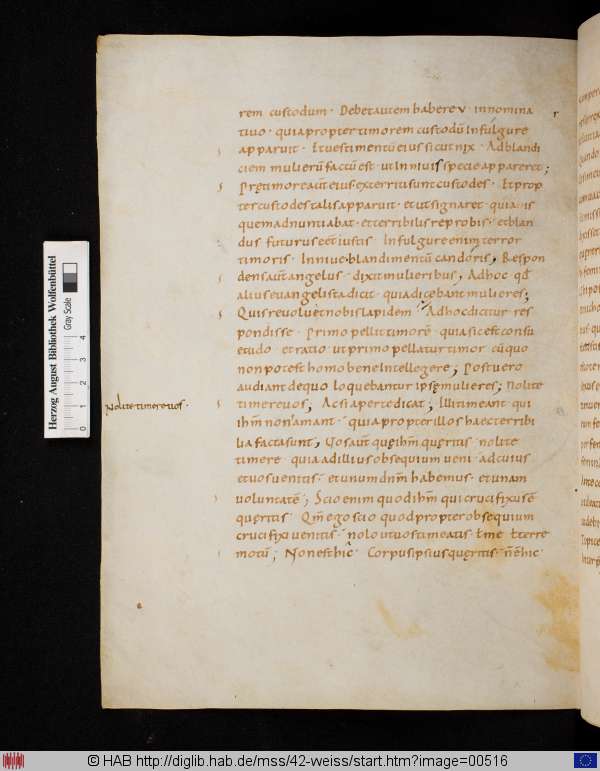 rem custodum · Debet autem habere v · in nomina
tiuo · quia propter timorem custodū In fulgure
apparuit · Et uestimentū eius sicut nix · Ad blandi
ciem mulierū factū est · ut In niuis specie appareret;
Prę timore aut̄ eius exterriti sunt custodes · Et prop
ter custodes talis apparuit · et ut signaret · quia is
quem adnuntiabat · et terribilis reprobis · et blan
dus futurus eēt iustis In fulgure enim terror
timoris · In niue · blandimentū candoris; Respon
dens aut̄ angelus · dixit mulieribus; Ad hoc qđ
alius euangelista dicit · quia dicebant mulieres;
Quis reuoluet nobis lapidem Ad hoc dicitur res
pondisse · Primo pellit timorē · quia sic est consu
etudo · et ratio · ut primo pellatur timor · cū quo
non potest homo bene Intellegere; Post uero
audiant de quo loquebantur ipsę mulieres; Nolite
timere uos; Ac si aperte dicat; Illi timeant qui
ihm̄ non amant · quia propter illos haec terribi
lia facta sunt; Uos aut̄ quę ihm̄ quęritis nolite
timere · quia ad illius obsequium ueni · ad cuius
et uos uenitis · et unum dn̄m habemus · et unam
uoluntatē; Scio enim quod ihm̄ qui crucifixus ē
quęritis · Qm̄ ego scio quod propter obsequium
crucifixi uenitis · nolo ut uos timeatis · ł me ł terre
motū; Non est hic · Corpus ipsius quęritis · n̄ ē hic
Nolite timere uos ·
r
Herzog August Bibliothek Wolfenbüttel
Gray Scale
0 1 2 3 4
© HAB http://diglib.hab.de/mss/42-weiss/start.htm?image=00516